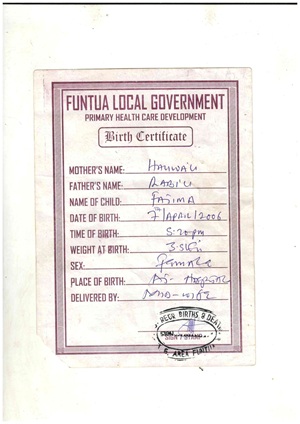 FUNTUA LOCAL GOVERNMENT
PRIMARY HEALTH CARE DEVELOPMENT
Birth Certificate
MOTHER'S NAME: HAUWA'U
FATHER'S NAME: RABI'U
NAME OF CHILD: FATIMA
DATE OF BIRTH: 7/APRIL/2006
TIME OF BIRTH: 5:20pm
WEIGHT AT BIRTH:
SEX: Female
PLACE OF BIRTH:
DELIVERED BY: MID-WIFE
BIRTHS & DEATH
SIGN / STAMP
AREA FUNTUA